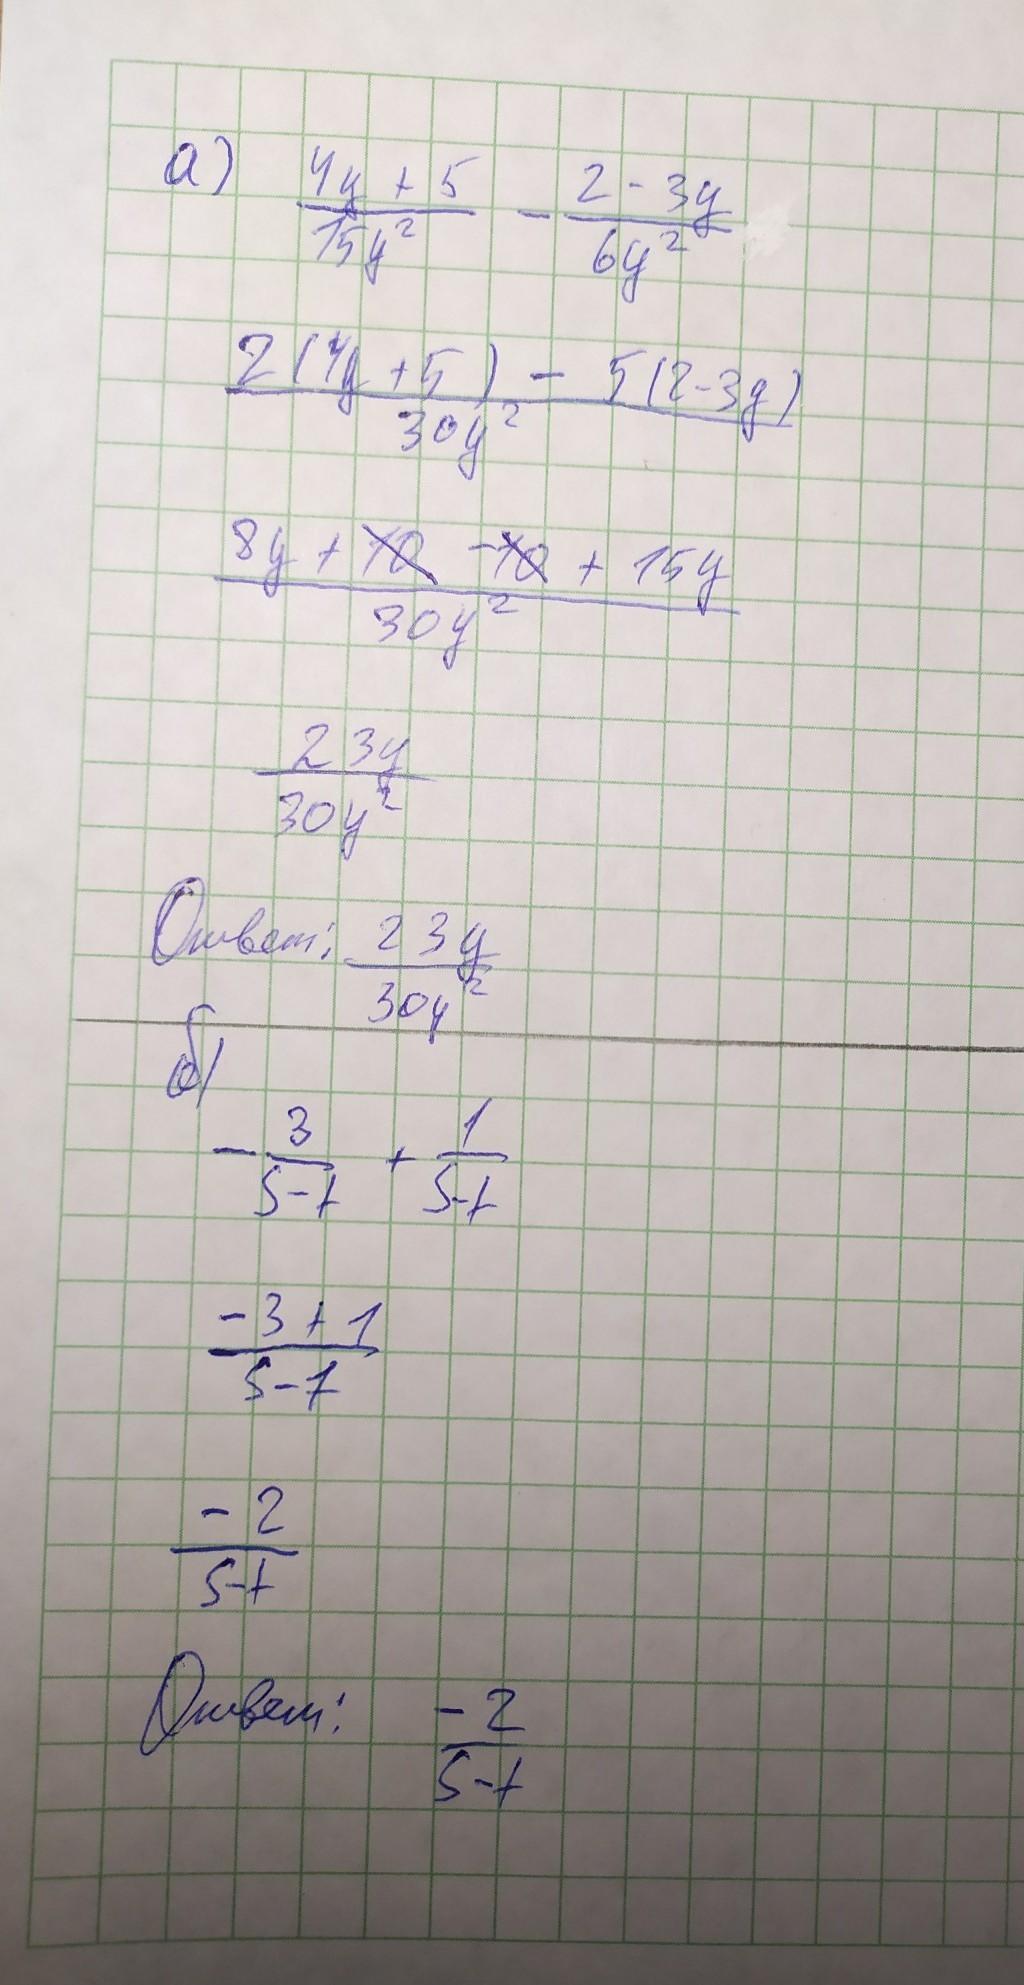 а) (4y + 5)/(15y²) - (2 - 3y)/(6y²)
(2(4y + 5) - 5(2-3y))/(30y²)
(8y + 10 - 10 + 15y)/(30y²)
23y/(30y²)
Ответ: 23y/(30y²)
б)
- 3/(s-t) + 1/(s-t)
(-3+1)/(s-t)
-2/(s-t)
Ответ: -2/(s-t)